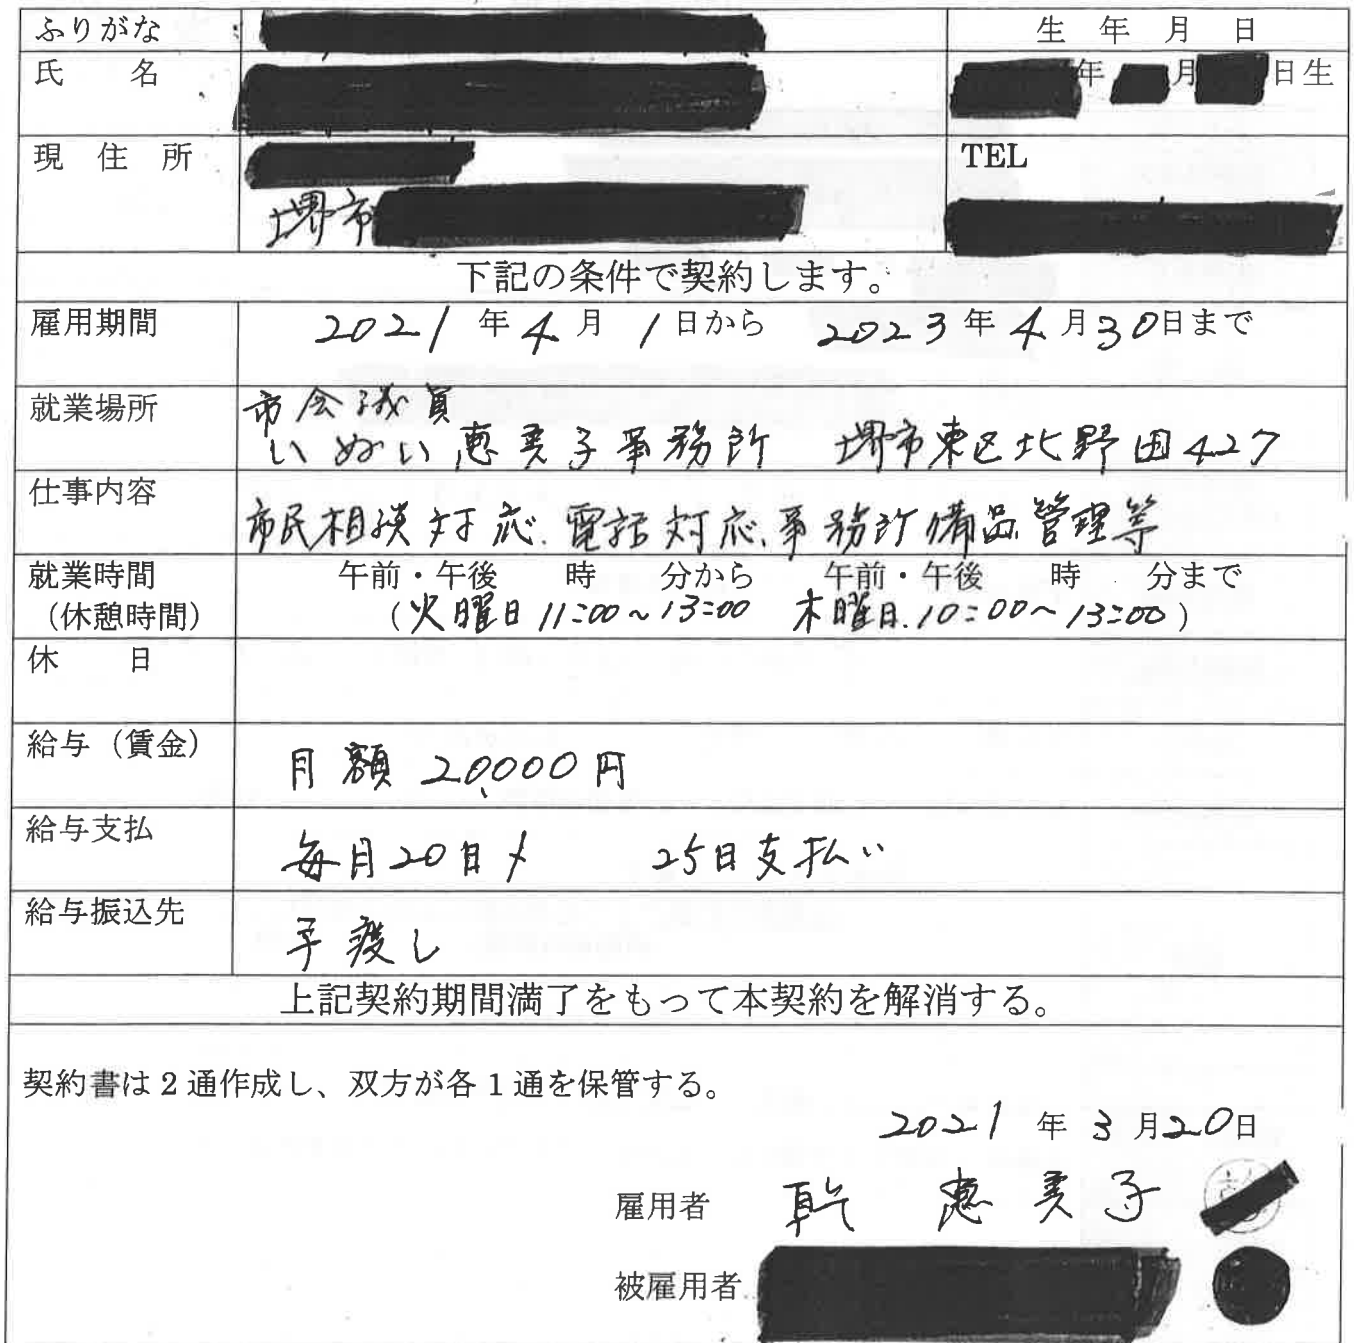 ふりがな
生 年 月 日
氏 名
年 月 日生
現 住 所
TEL
堺市
下記の条件で契約します。
雇用期間
2021年4月1日から 2023年4月30日まで
就業場所
市会議員
いぬい恵美子事務所 堺市東区北野田427
仕事内容
市民相談対応、電話対応、事務所備品管理等
就業時間
午前・午後 時 分から 午前・午後 時 分まで
(休憩時間)
(火曜日11:00~13:00 木曜日.10:00~13:00)
休 日
給与(賃金)
月額 20,000円
給与支払
毎月20日〆 25日支払い
給与振込先
手渡し
上記契約期間満了をもって本契約を解消する。
契約書は2通作成し、双方が各1通を保管する。
2021年3月20日
雇用者 乾 恵美子
被雇用者